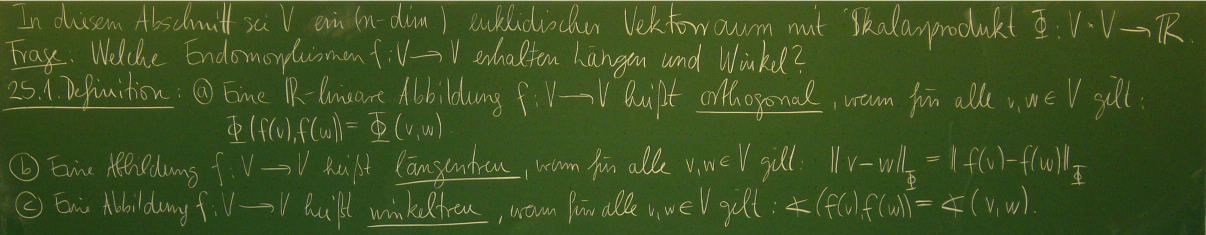 In diesem Abschnitt sei V ein (n-dim) euklidischer Vektorraum mit Skalarprodukt Φ: V×V → ℝ.
Frage: Welche Endomorphismen f: V → V erhalten Längen und Winkel?
25.1. Definition: ⓐ Eine ℝ-lineare Abbildung f: V → V heißt orthogonal, wenn für alle v, w ∈ V gilt:
Φ(f(v), f(w)) = Φ(v, w)
ⓑ Eine Abbildung f: V → V heißt längentreu, wenn für alle v, w ∈ V gilt: ‖v − w‖_Φ = ‖f(v) − f(w)‖_Φ
ⓒ Eine Abbildung f: V → V heißt winkeltreu, wenn für alle v, w ∈ V gilt: ∢(f(v), f(w)) = ∢(v, w).